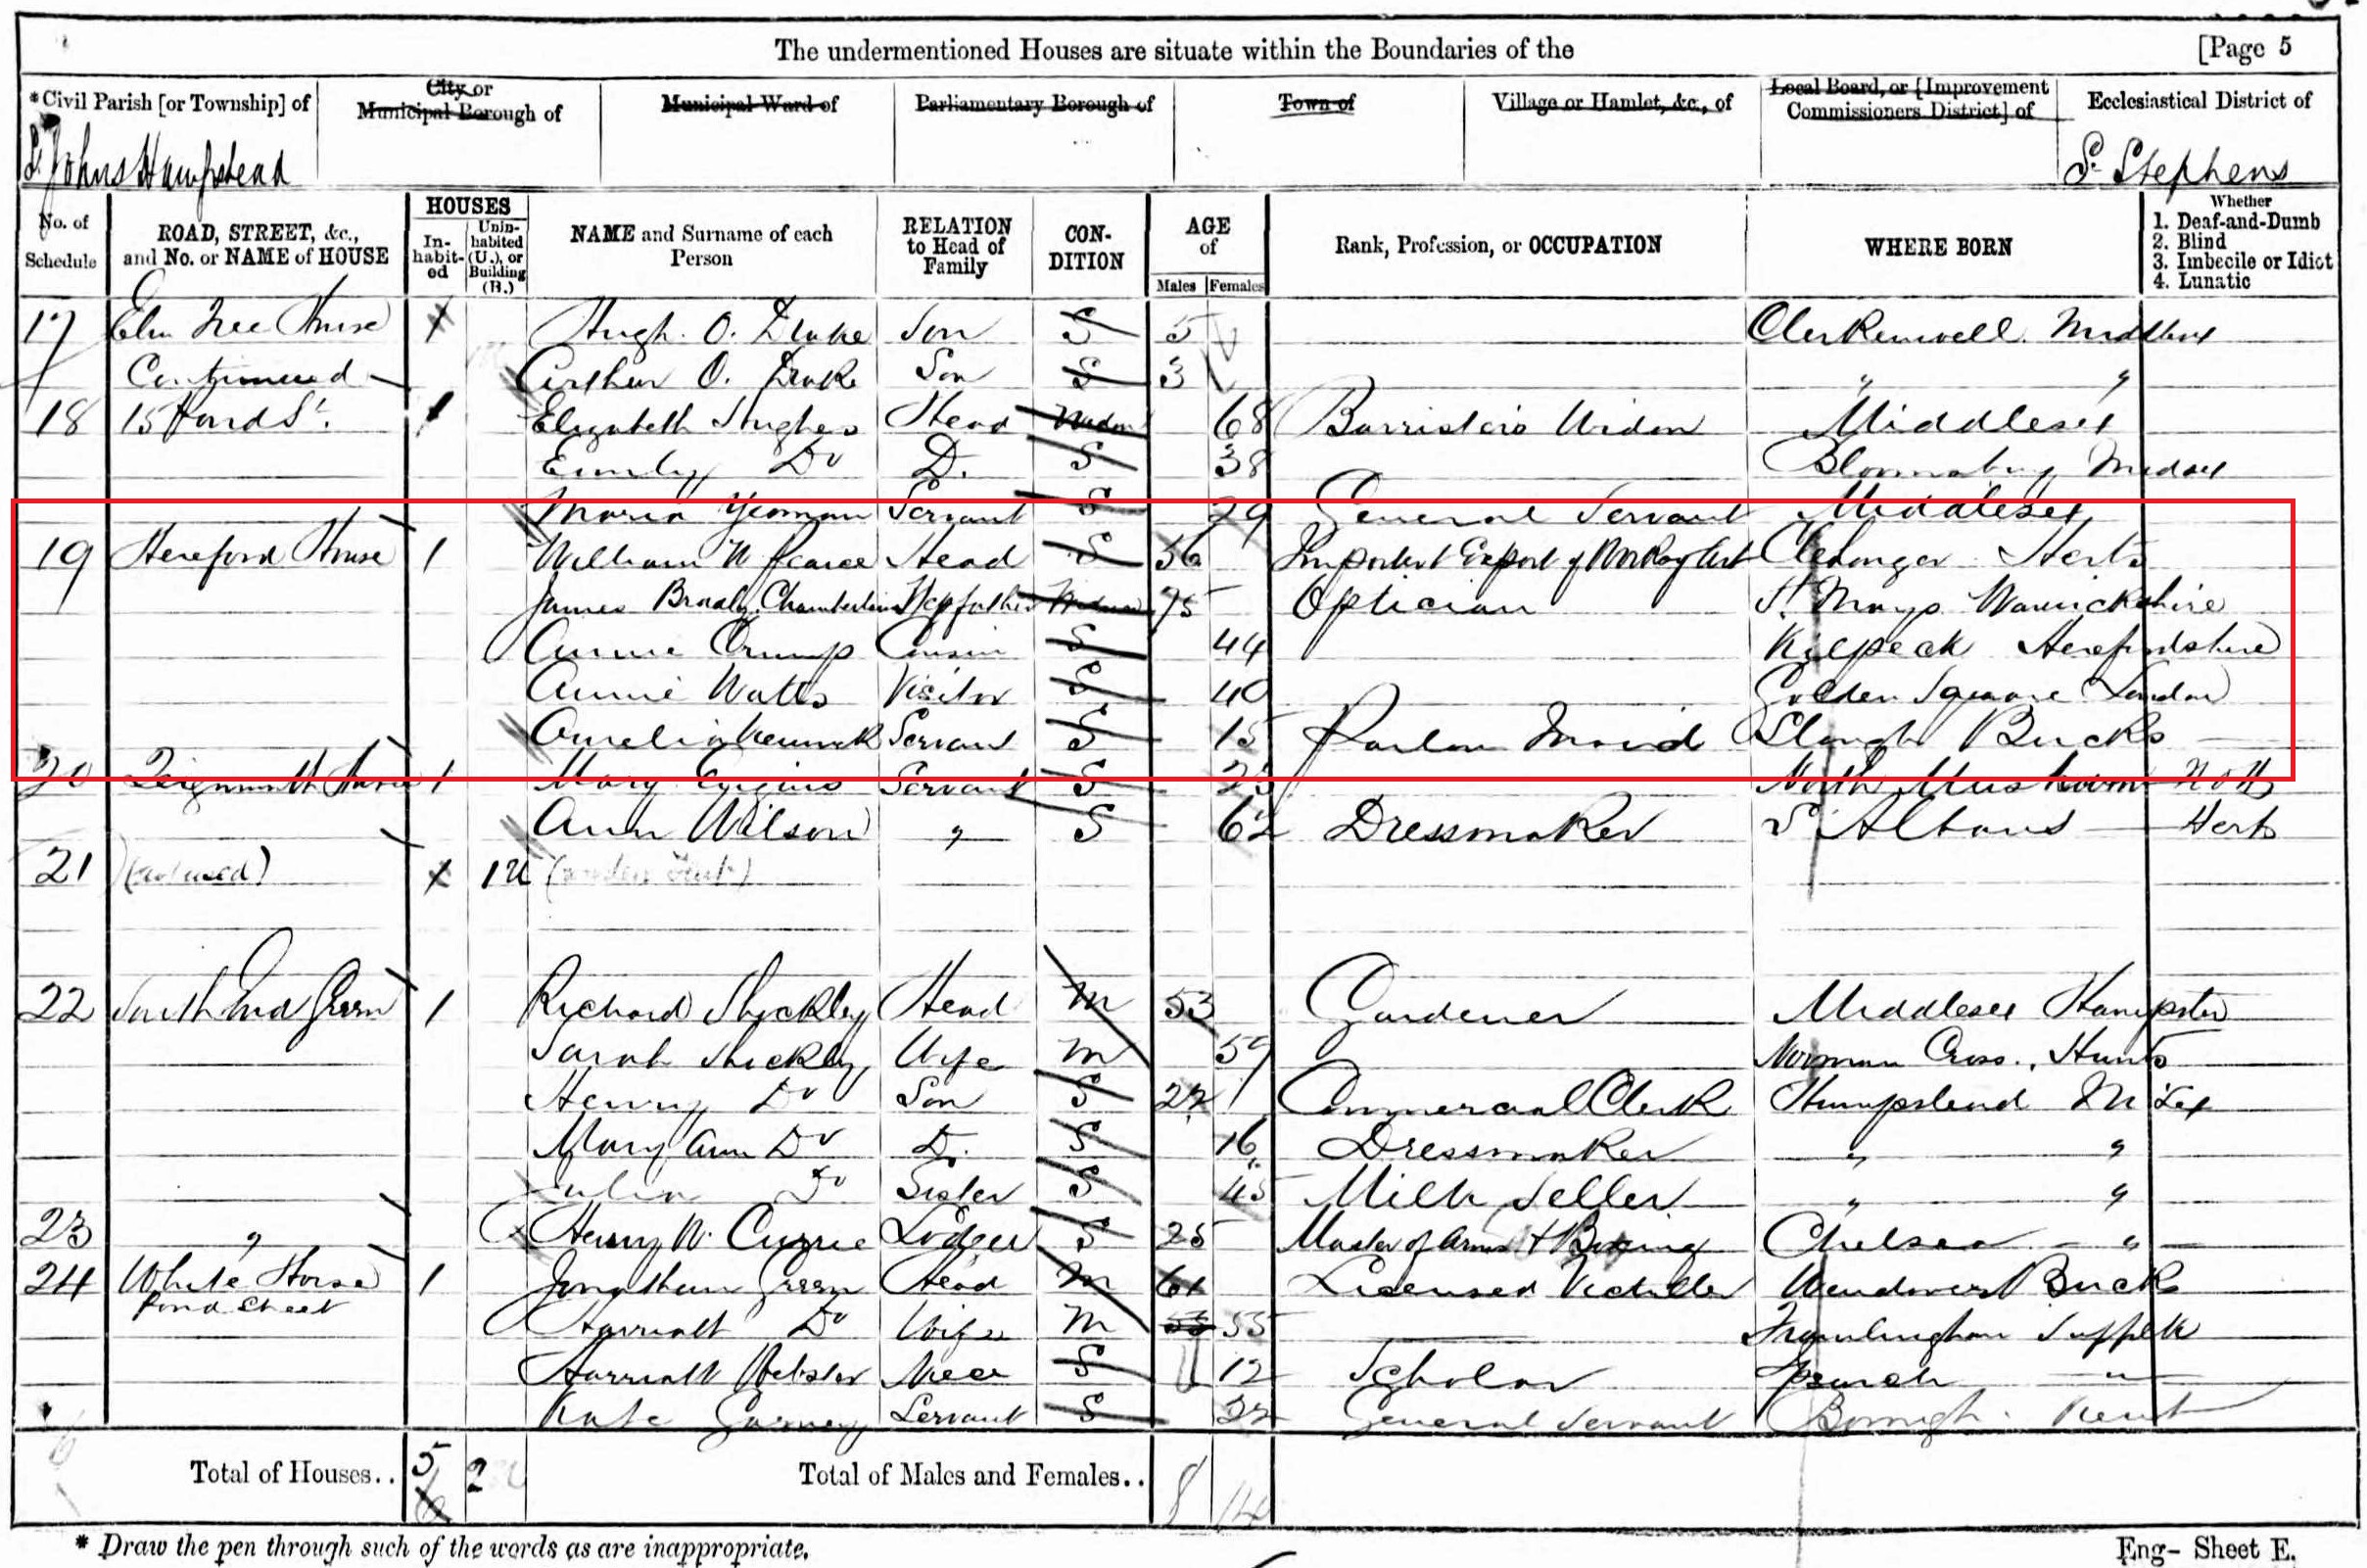 The undermentioned Houses are situate within the Boundaries of the [Page 5
*Civil Parish [or Township] of
St Johns Hampstead
City or Municipal Borough of
Municipal Ward of
Parliamentary Borough of
Town of
Village or Hamlet, &c., of
Local Board, or [Improvement Commissioners District] of
Ecclesiastical District of
St Stephens
No. of Schedule
ROAD, STREET, &c., and No. or NAME of HOUSE
HOUSES
In-habit-ed
Unin-habited (U.), or Building (B.)
NAME and Surname of each Person
RELATION to Head of Family
CON-DITION
AGE of
Males Females
Rank, Profession, or OCCUPATION
WHERE BORN
Whether
1. Deaf-and-Dumb
2. Blind
3. Imbecile or Idiot
4. Lunatic
17 Elm Tree House Hugh O. Drake Son S 5 Clerkenwell
Continued Arthur O. Drake Son S 3 " "
18 15 Pond St. 1 Elizabeth Hughes Head Widow 68 Barristers Widow Middlesex
Emily Do D. S 38 Bloomsbury
Maria Yeoman Servant S General Servant Middlesex
19 Hereford House 1 William W Pearce Head S 56 Clehonger
James Chamberlain Stepfather 75 Optician St Marys Warwickshire
Annie Crump Cousin S 44 Kilpeck Herefordshire
Annie Watts Visitor S 40 Golden Square London
Amelia Servant S 15 Parlour Maid Slough Bucks
20 Teignmouth House 1 Mary Servant S North Muskham Notts
Ann Wilson " S 62 Dressmaker St Albans Herts
21 1 U
22 South End Green 1 Richard Head M 53 Gardener Middlesex
Sarah Wife M Norman Cross, Hunts
Henry Do Son S Commercial Clerk Hampstead
Mary Ann Do D. S 16 Dressmaker " "
Do Sister S 45 Milk Seller " "
23 " Henry W. Currie Lodger S 25 Master of Arms & Boxing Chelsea "
24 White Horse 1 Jonathan Green Head M 61 Licensed Wendover Bucks
Pond Street
Harriett Do Wife M 55 Framlingham Suffolk
Harriett Webster Niece S 12 Scholar "
Kate Servant S General Servant Kent
Total of Houses.. 5 2 Total of Males and Females.. 8 14
* Draw the pen through such of the words as are inappropriate.
Eng- Sheet E.